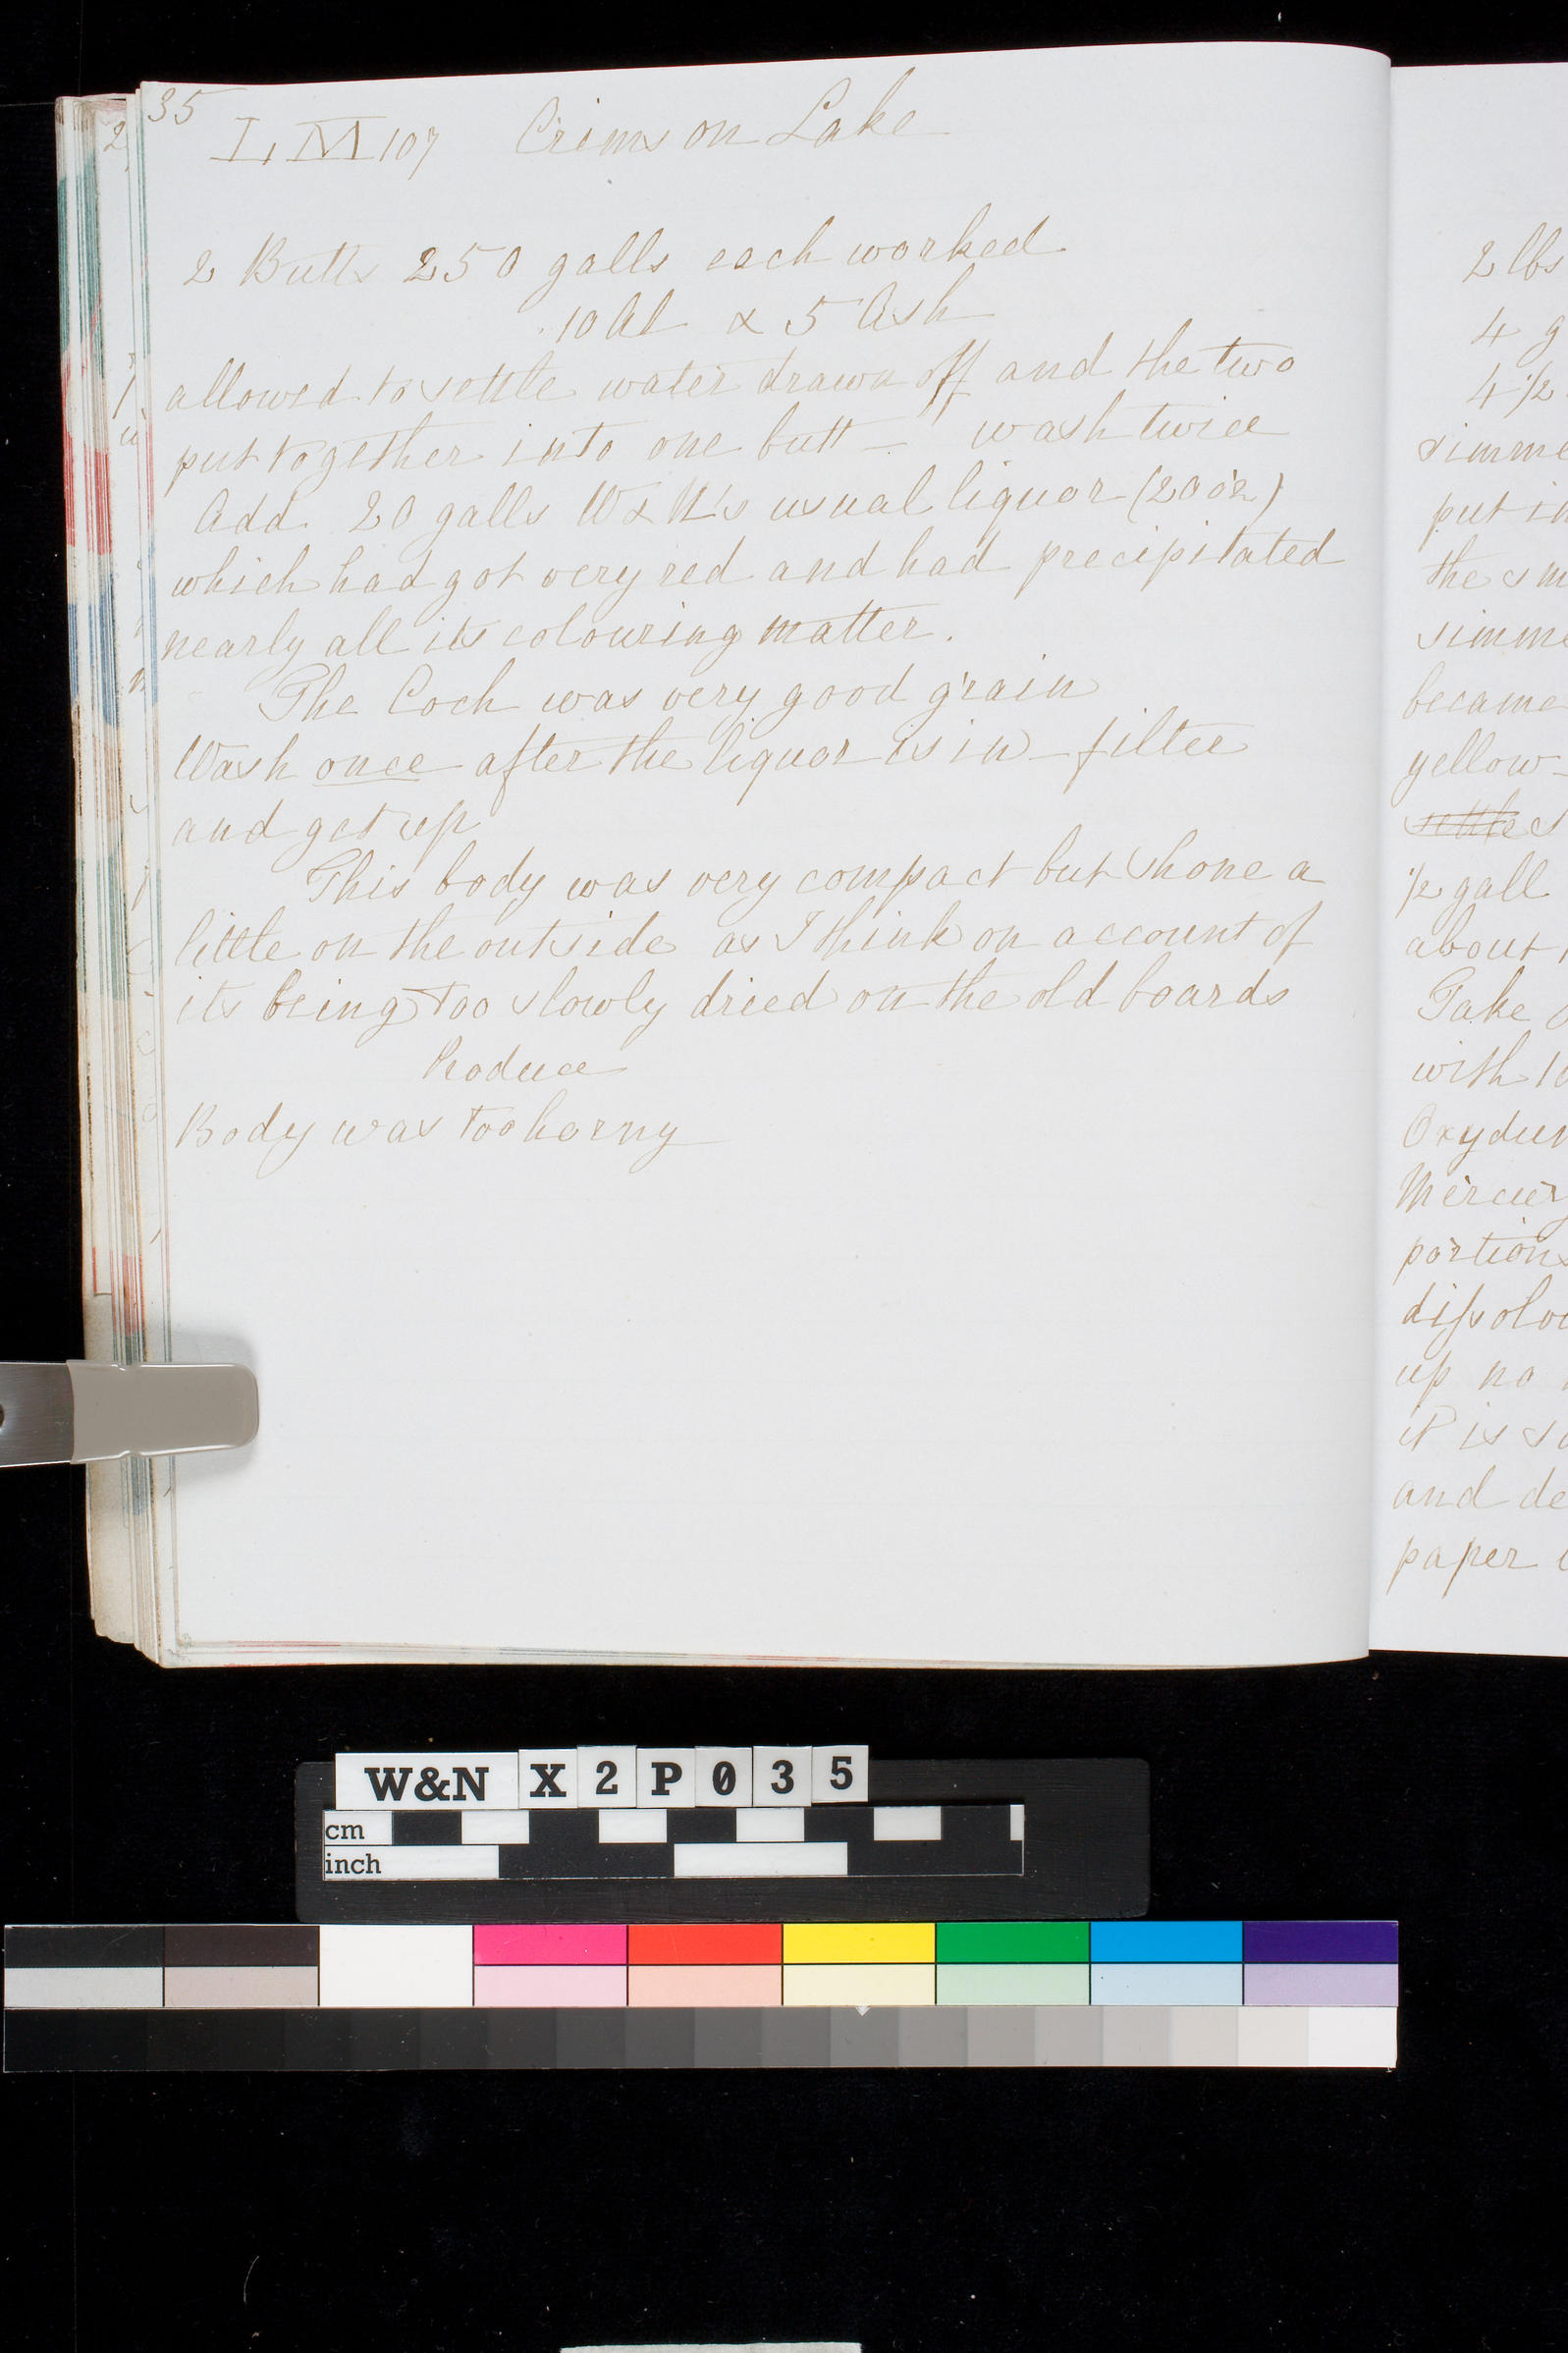 35
L, M 107 Crimson Lake
2 Butts 250 galls each worked
10 Al & 5 Ash
allowed to settle water drawn off and the two
put together into one butt - wash twice
Add 20 galls W & N's usual liquor (20 oz)
which had got very red and had precipitated
nearly all its colouring matter.
The Coch was very good grain
Wash once after the liquor is in - filter
and get up
This body was very compact but shone a
little on the outside as I think on account of
its being too slowly dried on the old boards
Produce
Body was too horny
2 lbs
4 g
4 1/2
simme
put in
the sm
simme
became
yellow -
settle s
1/2 gall
about
Take
with 10
Oxydum
Mercury
portions
dissolv
up no
it is so
and de
paper
W&N X2P035
cm
inch